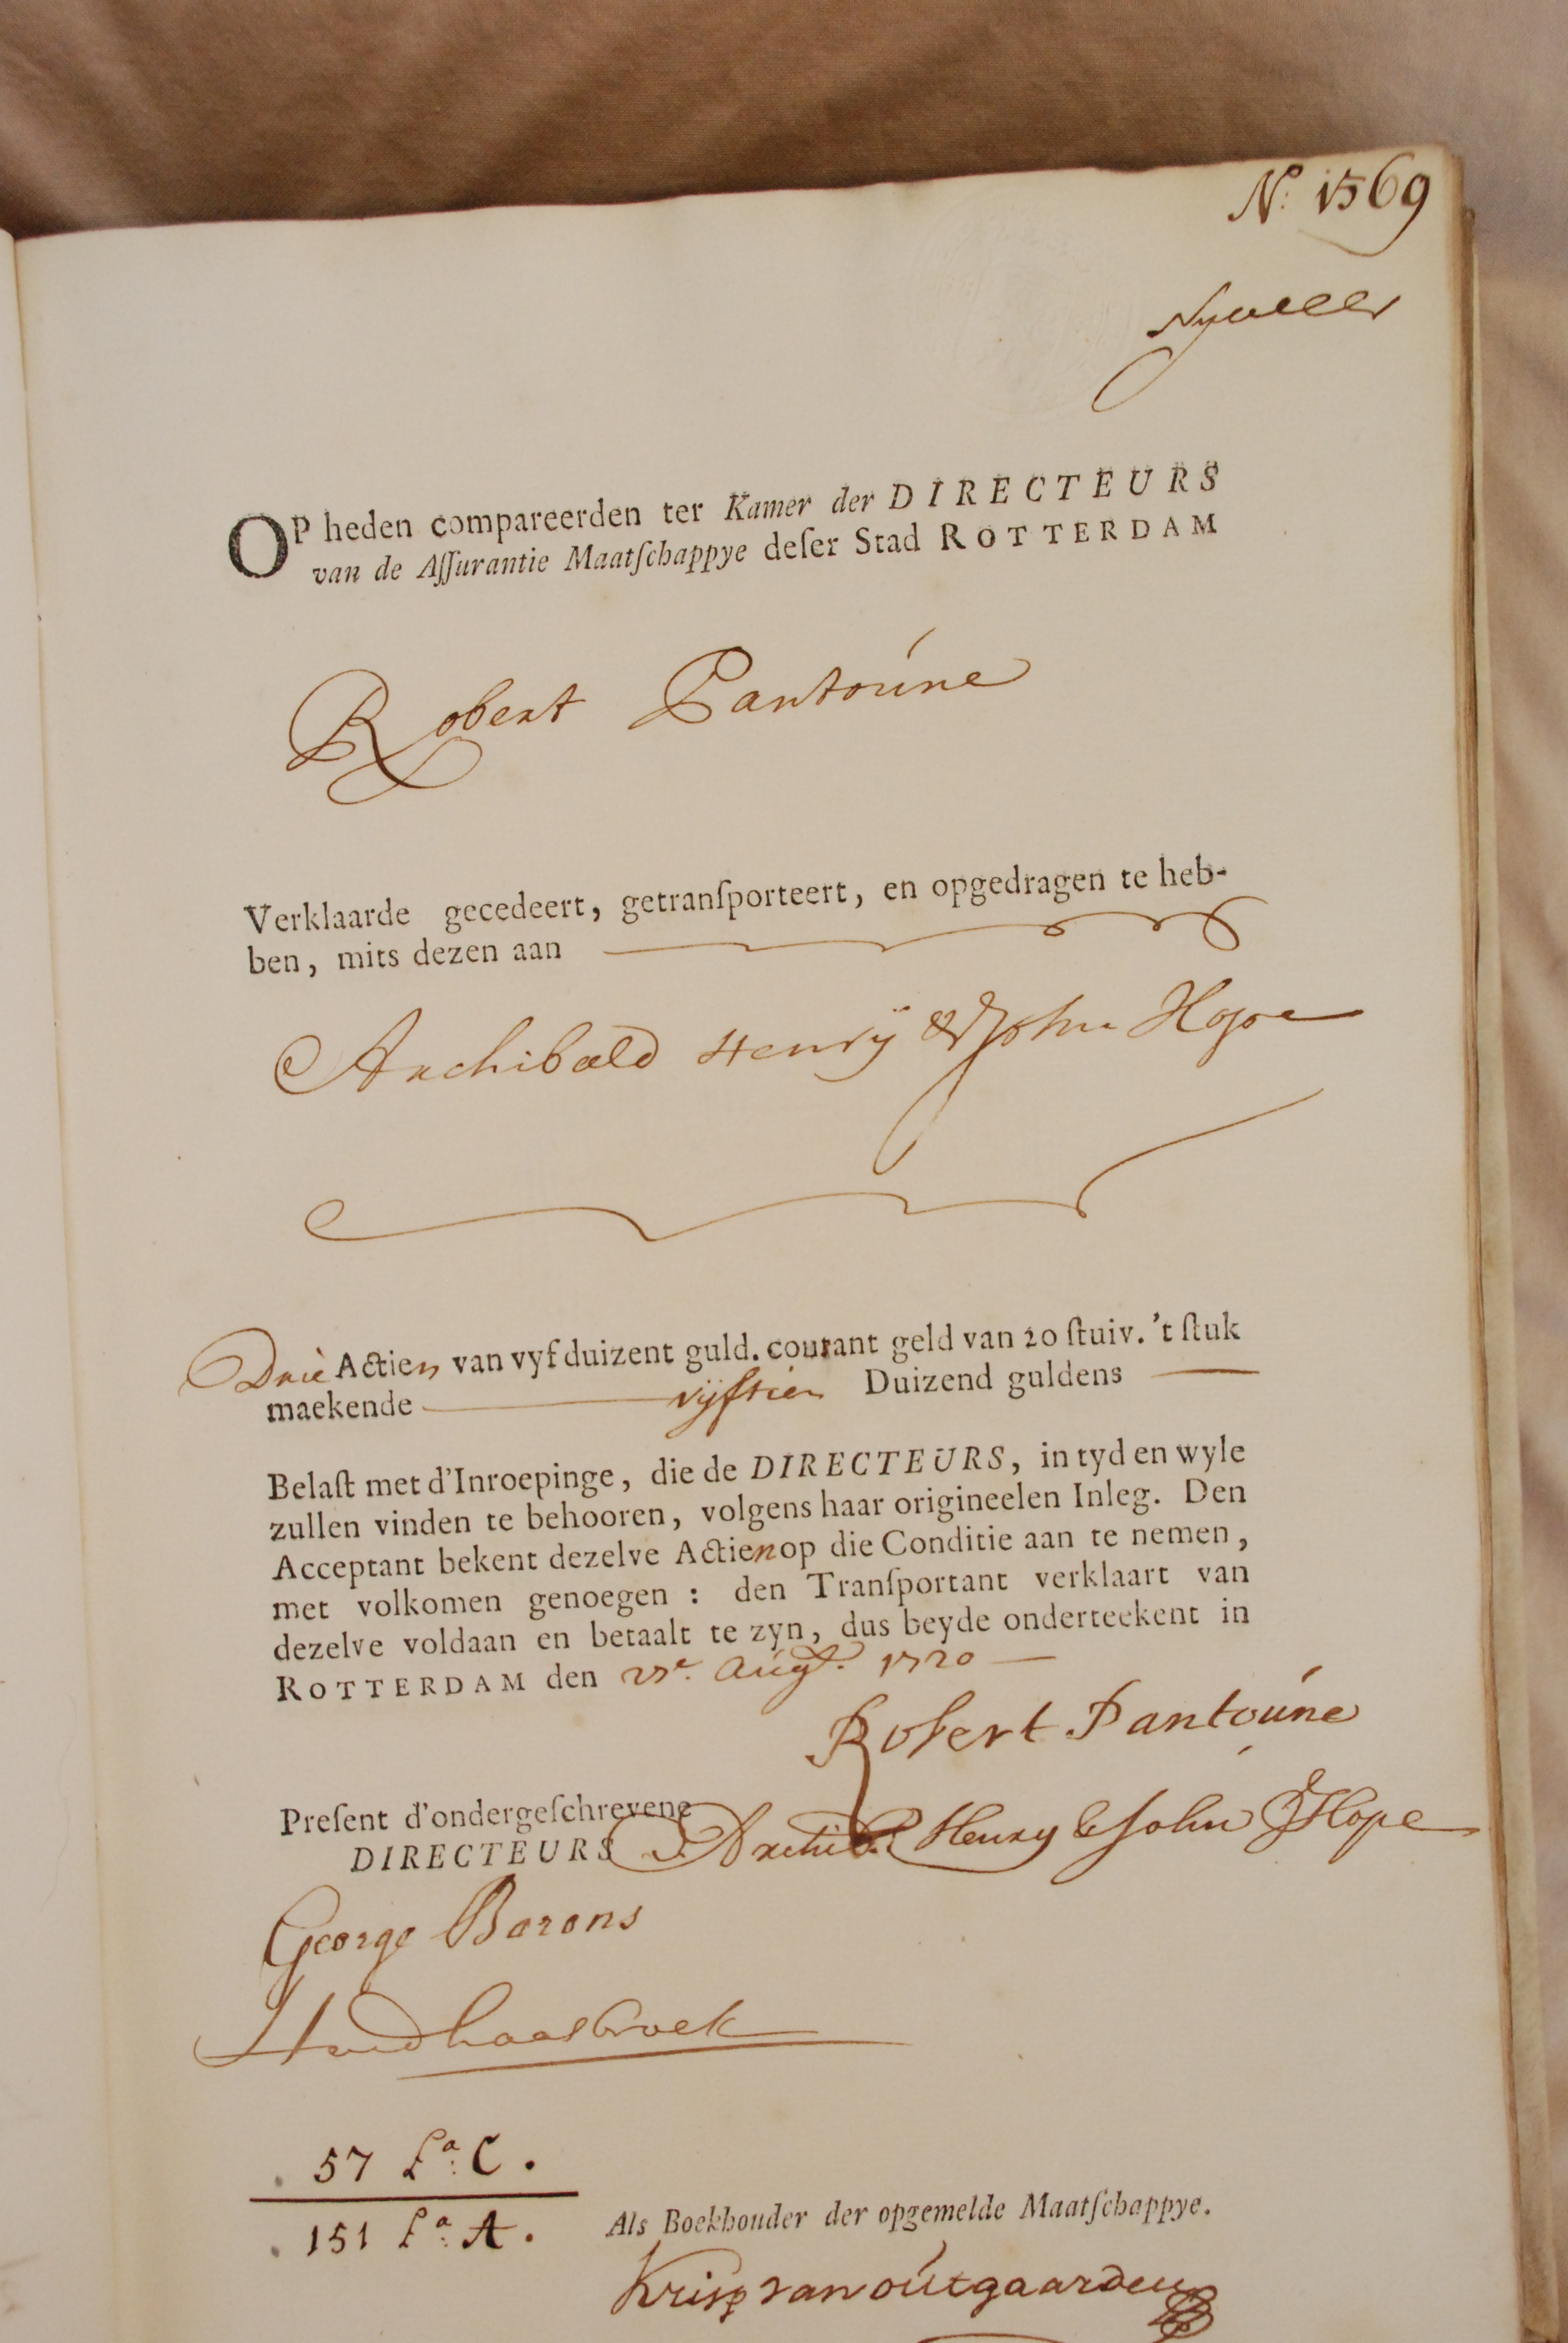 No. 1569
OP heden compareerden ter Kamer der DIRECTEURS
van de Aſſurantie Maatſchappye deſer Stad ROTTERDAM
Robert Pantoúne
Verklaarde gecedeert, getranſporteert, en opgedragen te heb-
ben, mits dezen aan
Archibald Henrÿ & John Hope
Drie Actien van vyf duizent guld. courant geld van 20 ſtuiv. 't ſtuk
maekende vÿftien Duizend guldens
Belaſt met d'Inroepinge, die de DIRECTEURS, in tyd en wyle
zullen vinden te behooren, volgens haar origineelen Inleg. Den
Acceptant bekent dezelve Actien op die Conditie aan te nemen,
met volkomen genoegen : den Tranſportant verklaart van
dezelve voldaan en betaalt te zyn, dus beyde onderteekent in
ROTTERDAM den Aúgt. 1720
Robert Pantoúne
Preſent d'ondergeſchrevene
DIRECTEURS
Archib. Henry & John Hope
George Barons
57 La. C.
151 La. A.
Als Boekhouder der opgemelde Maatſchappye.
Krisp van oútgaarden